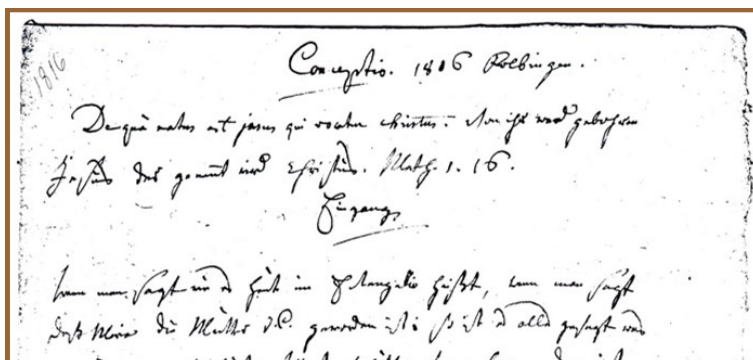 1816
Conceptio. 1816 Kolbingen.
De quâ natus est jesus qui vocatur christus: Von ihr ward gebohren
Jesus der genant wird Christus. Math. 1. 16.
Eingang
wann man sagt wie es heut im Evangelio heißt, wann man sagt
daß Maria die Mutter J.C. geworden ist: so ist es alles gesagt was